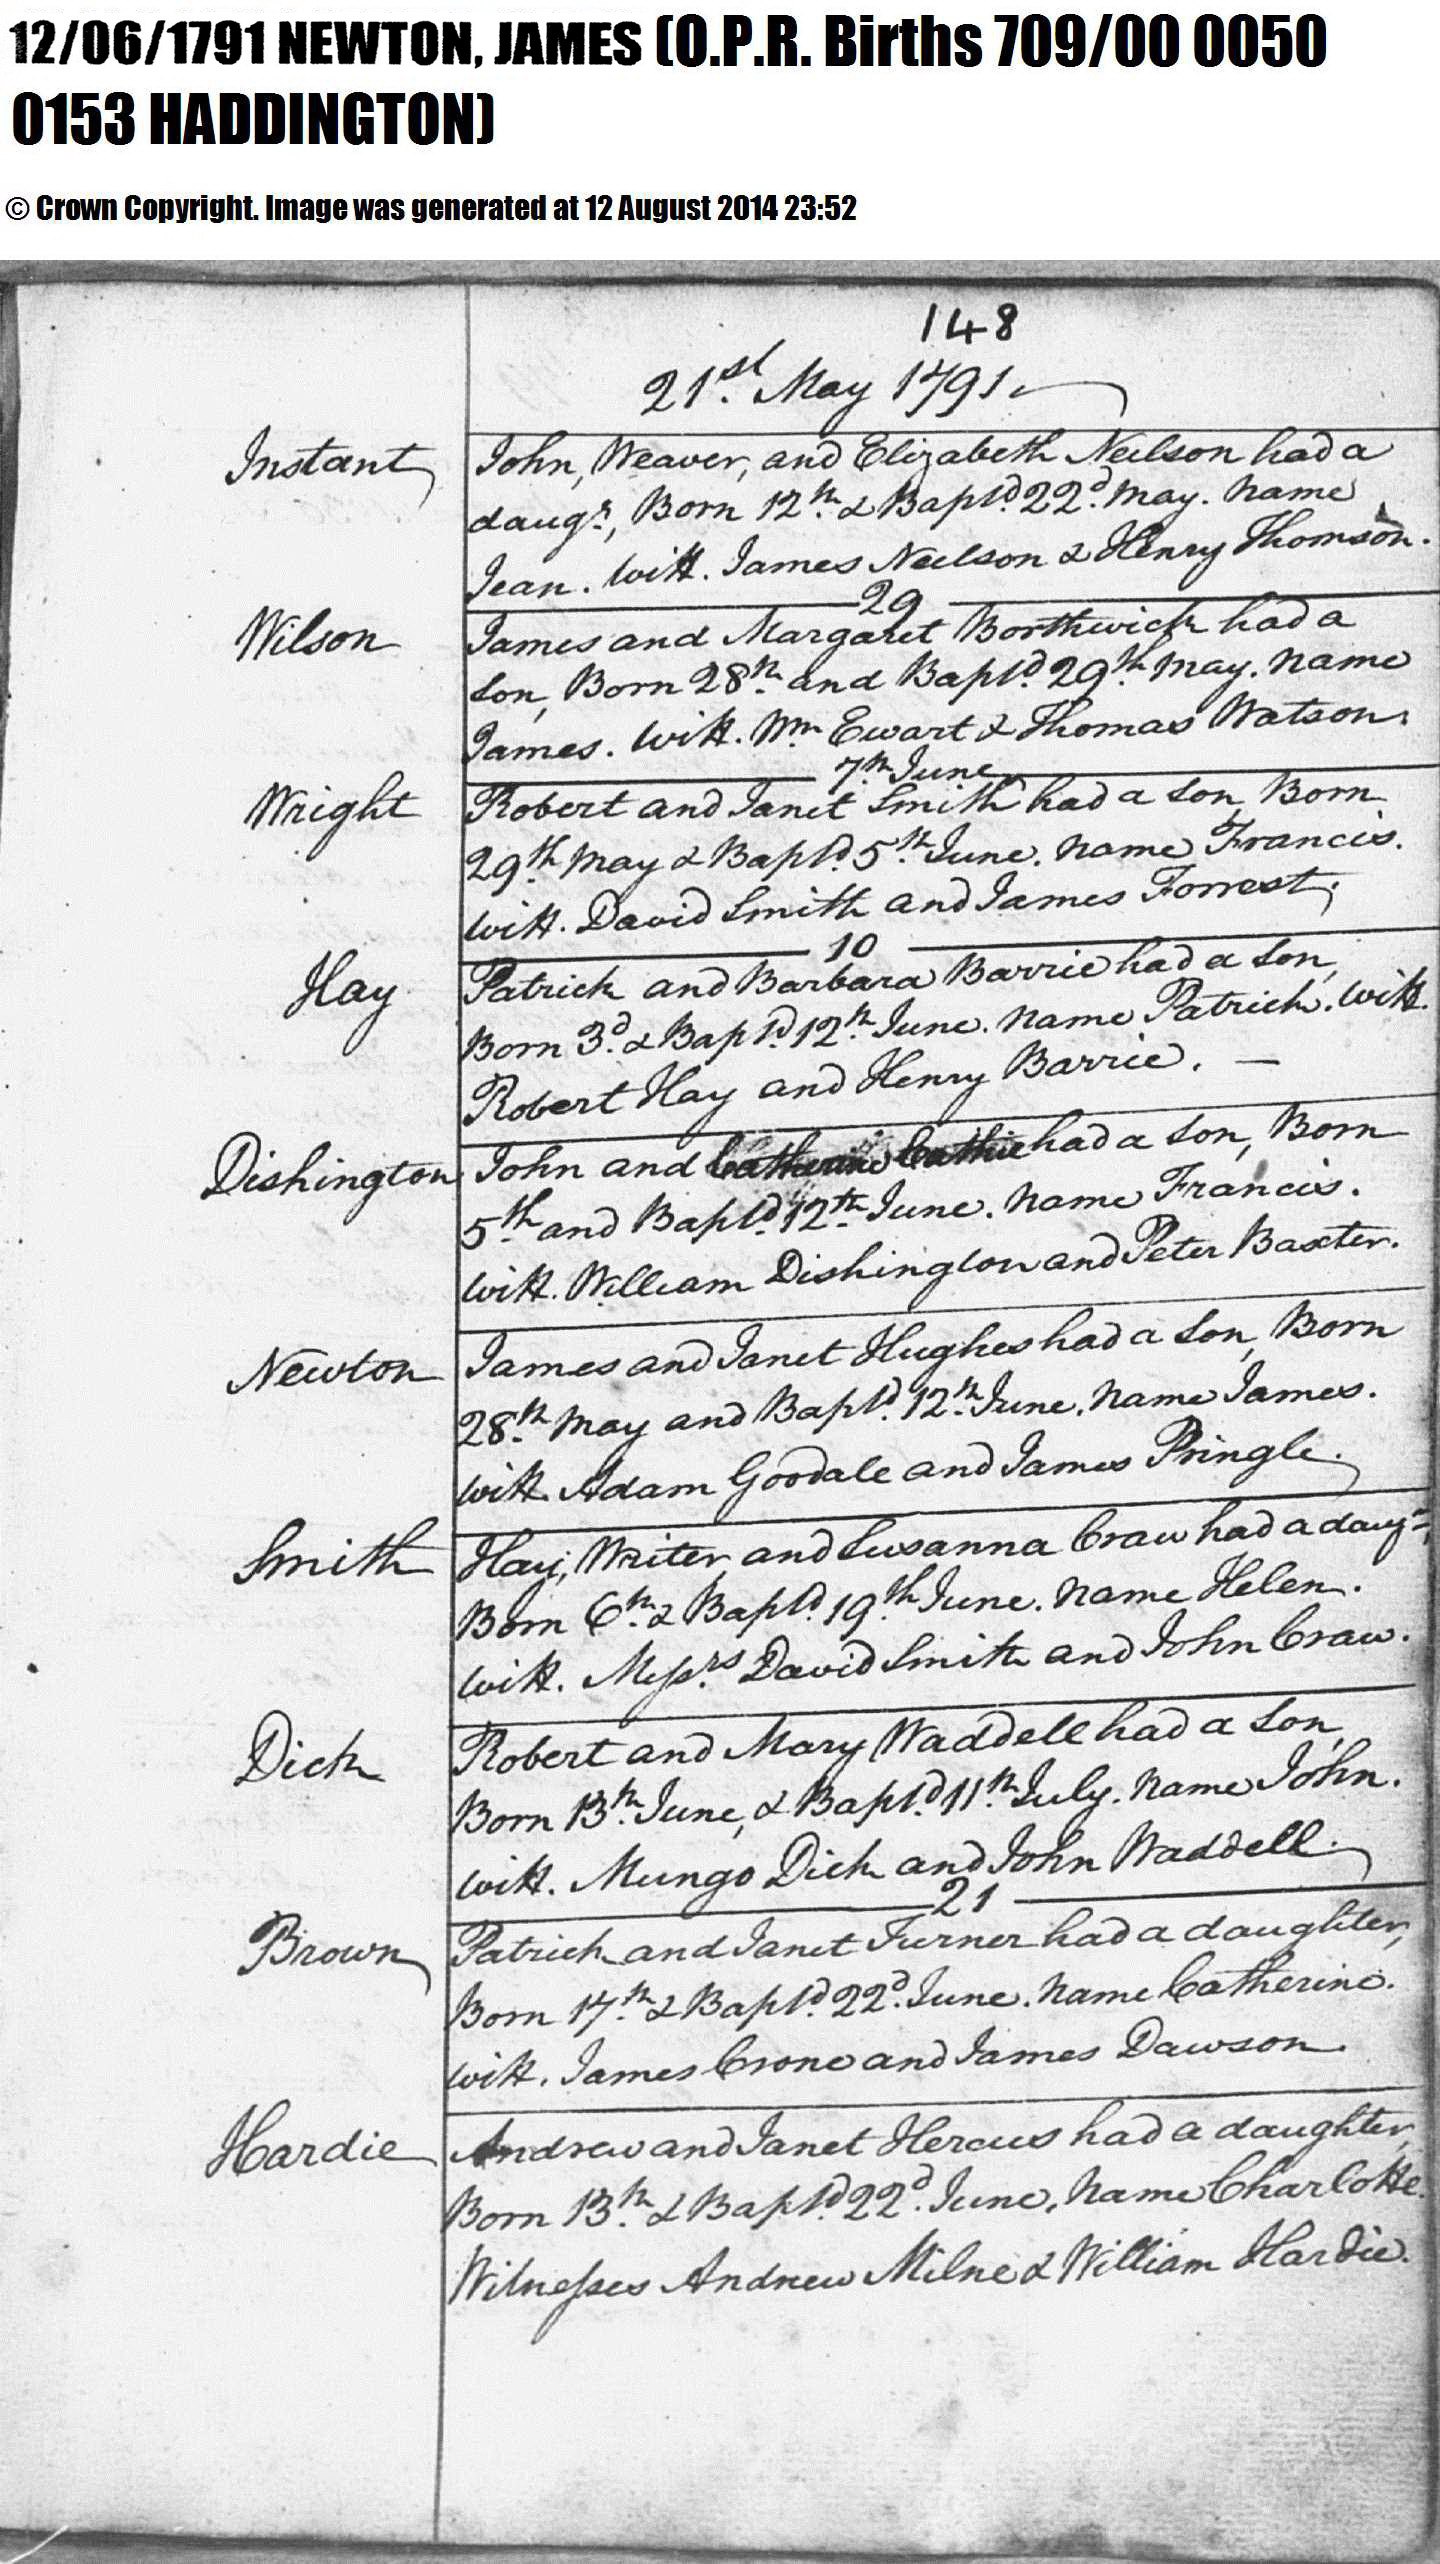 12/06/1791 NEWTON, JAMES (O.P.R. Births 709/00 0050
0153 HADDINGTON)
© Crown Copyright. Image was generated at 12 August 2014 23:52
148
21st. May 1791
Instant John, Weaver, and Elizabeth Neilson had a
daugr., Born 12th. & Baptd. 22d. May. Name
Jean. Witt. James Neilson & Henry Thomson.
29
Wilson James and Margaret Borthwick had a
Son, Born 28th. and Baptd. 29th. May. Name
James. Witt. Wm Ewart & Thomas Watson.
7th June
Wright Robert and Janet Smith had a Son, Born
29th May & Baptd. 5th. June. Name Francis.
Witt. David Smith and James Forrest.
10
Hay Patrick and Barbara Barrie had a Son,
Born 3d. & Baptd. 12th. June. Name Patrick. Witt.
Robert Hay and Henry Barrie. —
Dishington John and Catherine Cathie had a Son, Born
5th. and Baptd. 12th. June. Name Francis.
Witt. William Dishington and Peter Baxter.
Newton James and Janet Hughes had a Son, Born
28th. May and Baptd. 12th. June. Name James.
Witt. Adam Goodale and James Pringle.
Smith Hay, Writer, and Susanna Craw had a daugr.,
Born 6th. & Baptd. 19th June. Name Helen.
Witt. Messrs. David Smith and John Craw.
Dick Robert and Mary Waddell had a Son,
Born 13th. June, & Baptd. 11th. July. Name John.
Witt. Mungo Dick and John Waddell.
21
Brown Patrick and Janet Turner had a daughter,
Born 17th. & Baptd. 22d. June. Name Catherine.
Witt. James Crone and James Dawson.
Hardie Andrew and Janet Hercus had a daughter,
Born 13th. & Baptd. 22d. June, Name Charlotte.
Witnesses Andrew Milne & William Hardie.